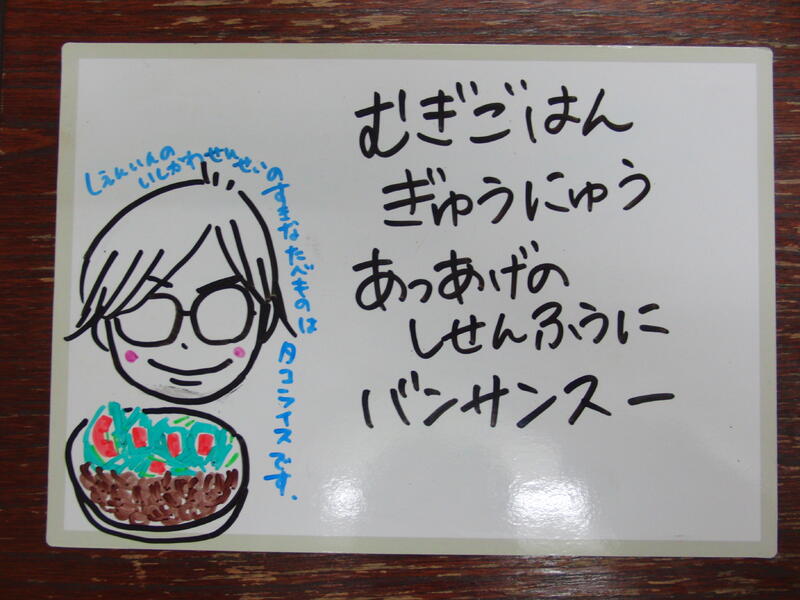 むぎごはん
ぎゅうにゅう
あつあげの
しせんふうに
バンサンスー
しえんいんの
いしかわせんせいのすきなたべものは
タコライスです.